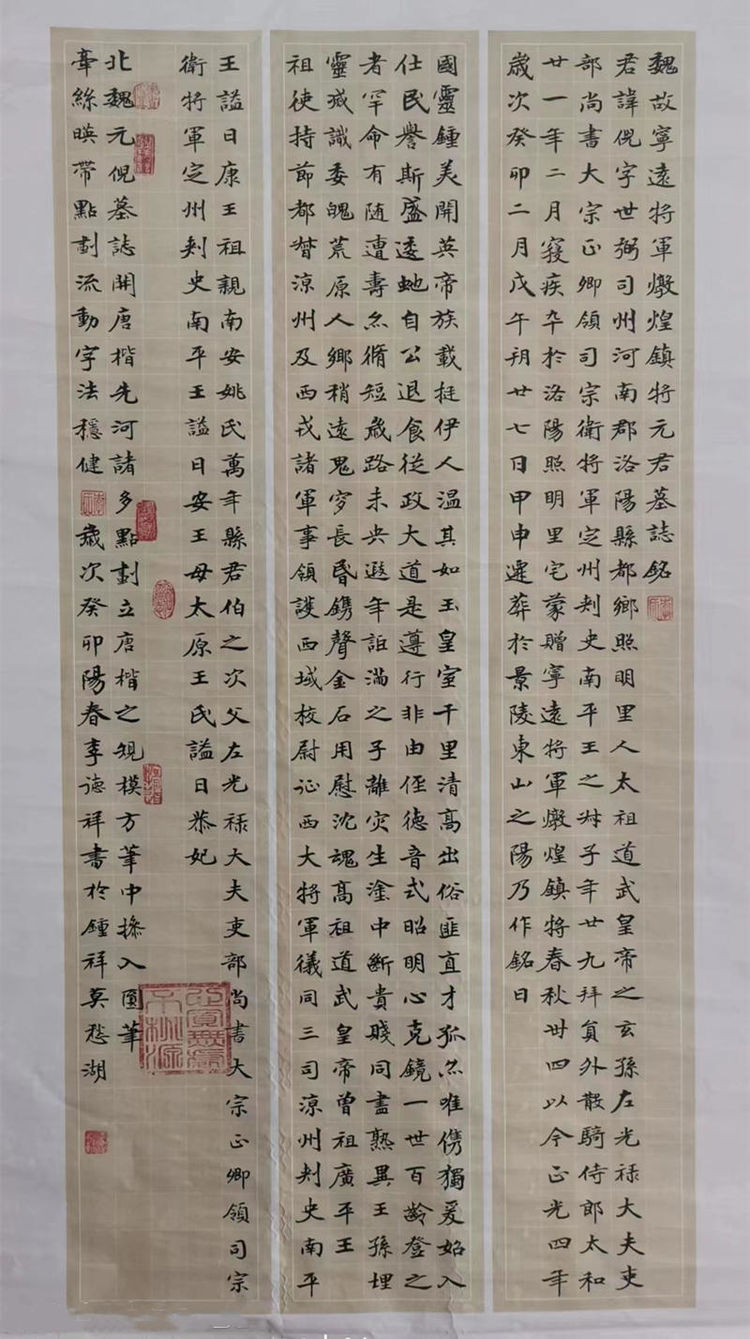 魏故寧遠將軍燉煌鎮將元君墓誌銘
君諱倪字世弼司州河南郡洛陽縣都鄉照明里人太祖道武皇帝之玄孫左光祿大夫吏
部尚書大宗正卿領司宗衛將軍定州刺史南平王之叔子年廿九拜員外散騎侍郎太和
廿一年二月寢疾卒於洛陽照明里宅蒙贈寧遠將軍燉煌鎮將春秋卅四以今正光四年
歲次癸卯二月戊午朔廿七日甲申遷葬於景陵東山之陽乃作銘曰
國靈鍾美開英帝族載挺伊人溫其如玉皇室千里清高出俗匪直才孤亦唯儁獨爰始入
仕民譽斯盛逶虵自公退食從政大道是遵行非由徑德音式昭明心克鏡一世百齡登之
者罕命有随遭壽亦脩短歲路未央遐年詎滿之子離灾生塗中斷貴賤同盡熟異王孫埋
靈滅識委魄荒原人鄉稍遠鬼穸長昏鐫聲金石用慰沈魂高祖道武皇帝曾祖廣平王
祖使持節都督涼州及西戎諸軍事領護西域校尉征西大將軍儀同三司涼州刺史南平
王謚曰康王祖親南安姚氏萬年縣君伯之次父左光祿大夫吏部尚書大宗正卿領司宗
衛將軍定州刺史南平王謚曰安王母太原王氏謚曰恭妃
北魏元倪墓誌開唐楷先河諸多點劃立唐楷之規模方筆中摻入圓筆
牽絲暎帶點劃流動字法穩健歲次癸卯陽春李德祥書於鍾祥莫愁湖